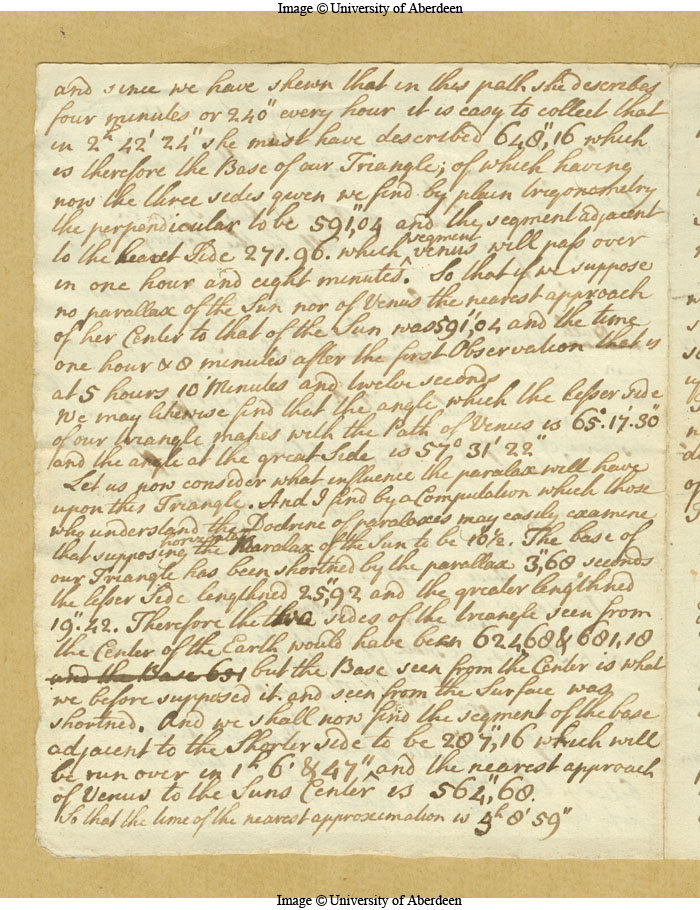 Image © University of Aberdeen
and since we have shewn that in this path she describes
four minutes or 240" every hour it is easy to collect that
in 2h 42' 24" she must have described 648",16 which
is therefore the Base of our Triangle; of which having
now the three sides given we find by plain trigonometry
the perpendicular to be 591",04 and the segment adjacent
to the Side 271.96. which segment Venus will pass over
in one hour and eight minutes. So that if we suppose
no parallax of the Sun nor of Venus the nearest approach
of her Center to that of the Sun was 591",04 and the time
one hour & 8 minutes after the first Observation that is
at 5 hours 10 Minutes and twelve seconds
We may likewise find that the angle which the lesser side
of our triangle makes with the Path of Venus is 65°.17'.30"
and the angle at the great Side is 57° 31' 22"
Let us now consider what influence the paralax will have
upon this Triangle. And I find by a Computation which those
who understand the Doctrine of paralaxes may easily examine
that supposing the horizontal Paralax of the Sun to be 10½. The base of
our Triangle has been shortned by the parallax 3",68 seconds
the lesser Side lengthned 25",92 and the greater lengthned
19".42. Therefore the two sides of the triangle seen from
the Center of the Earth would have been 624,68 & 681,18
and the Base 681 but the Base seen from the Center is what
we before supposed it and seen from the Surface was
shortned. And we shall now find the segment of the base
adjacent to the Shorter side to be 267",16 which will
be run over in 1h 6' & 47" and the nearest approach
of Venus to the Suns Center is 564",68.
So that the time of the nearest approximation is 5h 8' 59"
Image © University of Aberdeen